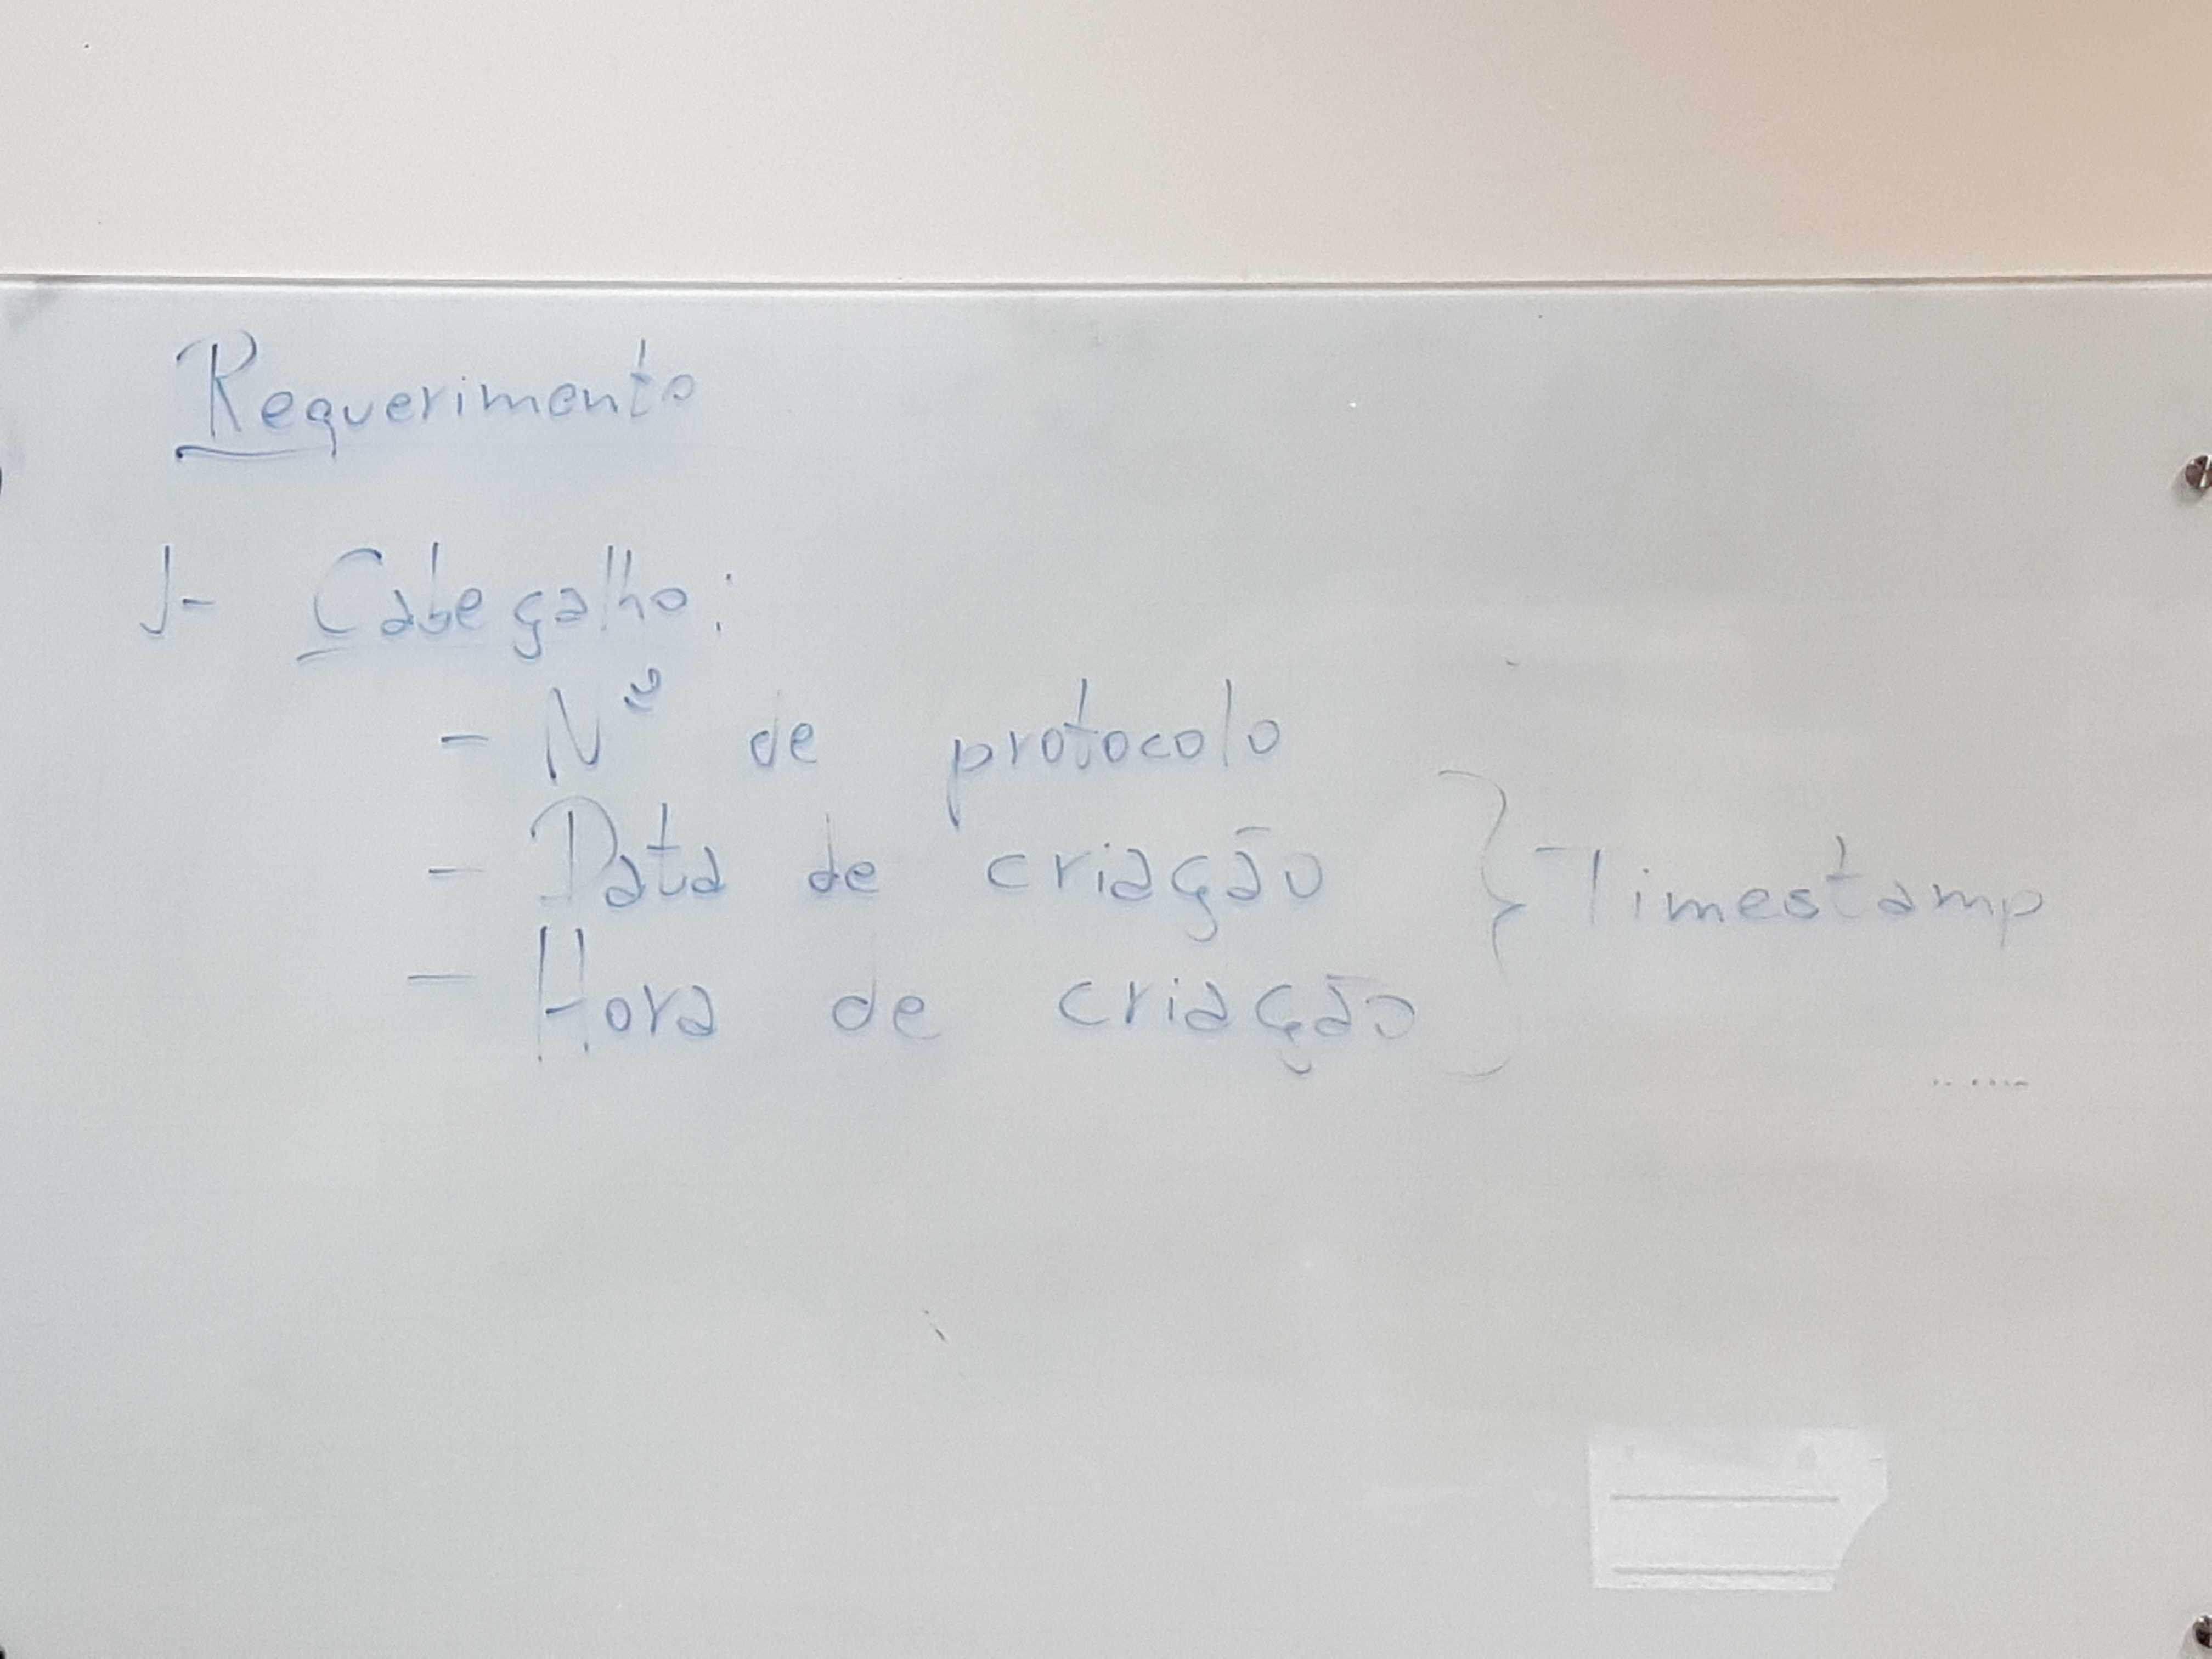 Requerimento
1- Cabeçalho:
- Nº de protocolo
- Data de criação
- Hora de criação
} Timestamp